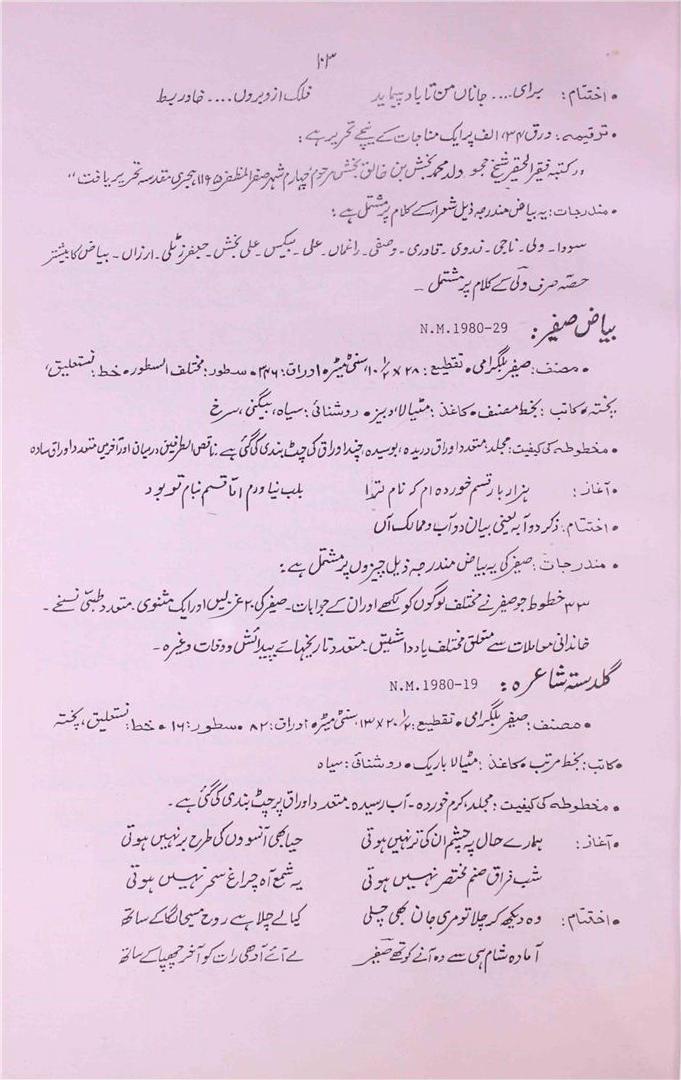 ۱۰۳
• اختتام: برای.... جاناں من تا باد پیماید فلک از و بروں.... خاور بط
• ترقیمہ: ورق ۱۳۴، الف پر ایک مناجات کے نیچے تحریر ہے:
"کتبہ فقیر الحقیر شیخ جمو ولد محمد بخش بن خالق بخش مرحوم چہارم شہر صفر المظفر ۱۱۶۵ ہجری مقدسہ تحریر یافت"
• مندرجات: یہ بیاض مندرجہ ذیل شعراء کے کلام پر مشتمل ہے:
سودا۔ ولی۔ ناجی۔ ندوی۔ قادری۔ وصفی۔ راغماں۔ علی۔ بیکس۔ علی بخش۔ جعفر زٹلی۔ ارزاں۔ بیاض کا بیشتر
حصّہ صرف ولی کے کلام پر مشتمل۔
بیاض صفیر: N.M.1980-29
• مصنف: صفیر بلگرامی • تقطیع: ۲۸ × ۱۰ ۱/۲ سنٹی میٹر • اوراق: ۲۴۶ • سطور: مختلف السطور • خط: نستعلیق،
پختہ • کاتب: بخط مصنف • کاغذ: مٹیالا، دبیز • روشنائی: سیاہ، بیگنی، سرخ
• مخطوطہ کی کیفیت: مجلد، متعدد اوراق دریدہ، بوسیدہ، چند اوراق کی چٹ بندی کی گئی ہے۔ ناقص الطرفین درمیان اور آخر میں متعدد اوراق سادہ
• آغاز: ہزار بار قسم خوردہ ام کہ نام ترا بلب نیاورم امّا قسم بنام تو بود
• اختتام: ذکر دوآبہ یعنی بیان دوآب و ممالک آں
• مندرجات: صفیر کی یہ بیاض مندرجہ ذیل چیزوں پر مشتمل ہے:
۳۳ خطوط جو صفیر نے مختلف لوگوں کو لکھے اور ان کے جوابات۔ صفیر کی ۲۰ غزلیں اور ایک مثنوی۔ متعدد طبّی نسخے۔
خاندانی معاملات سے متعلق مختلف یادداشتیں۔ متعدد تاریخہائے پیدائش و وفات وغیرہ۔
گلدستہ شاعرہ: N.M.1980-19
• مصنف: صفیر بلگرامی • تقطیع: ۲۰ ۱/۲ × ۱۳ سنٹی میٹر • اوراق: ۸۲ • سطور: ۱۶ • خط: نستعلیق، پختہ
• کاتب: بخط مرتب • کاغذ: مٹیالا باریک • روشنائی: سیاہ
• مخطوطہ کی کیفیت: مجلد، کرم خوردہ۔ آب رسیدہ۔ متعدد اوراق پر چٹ بندی کی گئی ہے۔
• آغاز: ہمارے حال پہ چشم ان کی تر نہیں ہوتی حیا بھی آنسووں کی طرح بر نہیں ہوتی
شب فراق صنم مختصر نہیں ہوتی یہ شمع آہ چراغ سحر نہیں ہوتی
• اختتام: وہ دیکھ کر چلا تو مری جان بھی چلی کیا لے چلا ہے روح مسیحا لگا کے ساتھ
آمادہ شام ہی سے وہ آنے کو تھے صفیر لے آئے آدھی رات کو آخر چھپا کے ساتھ